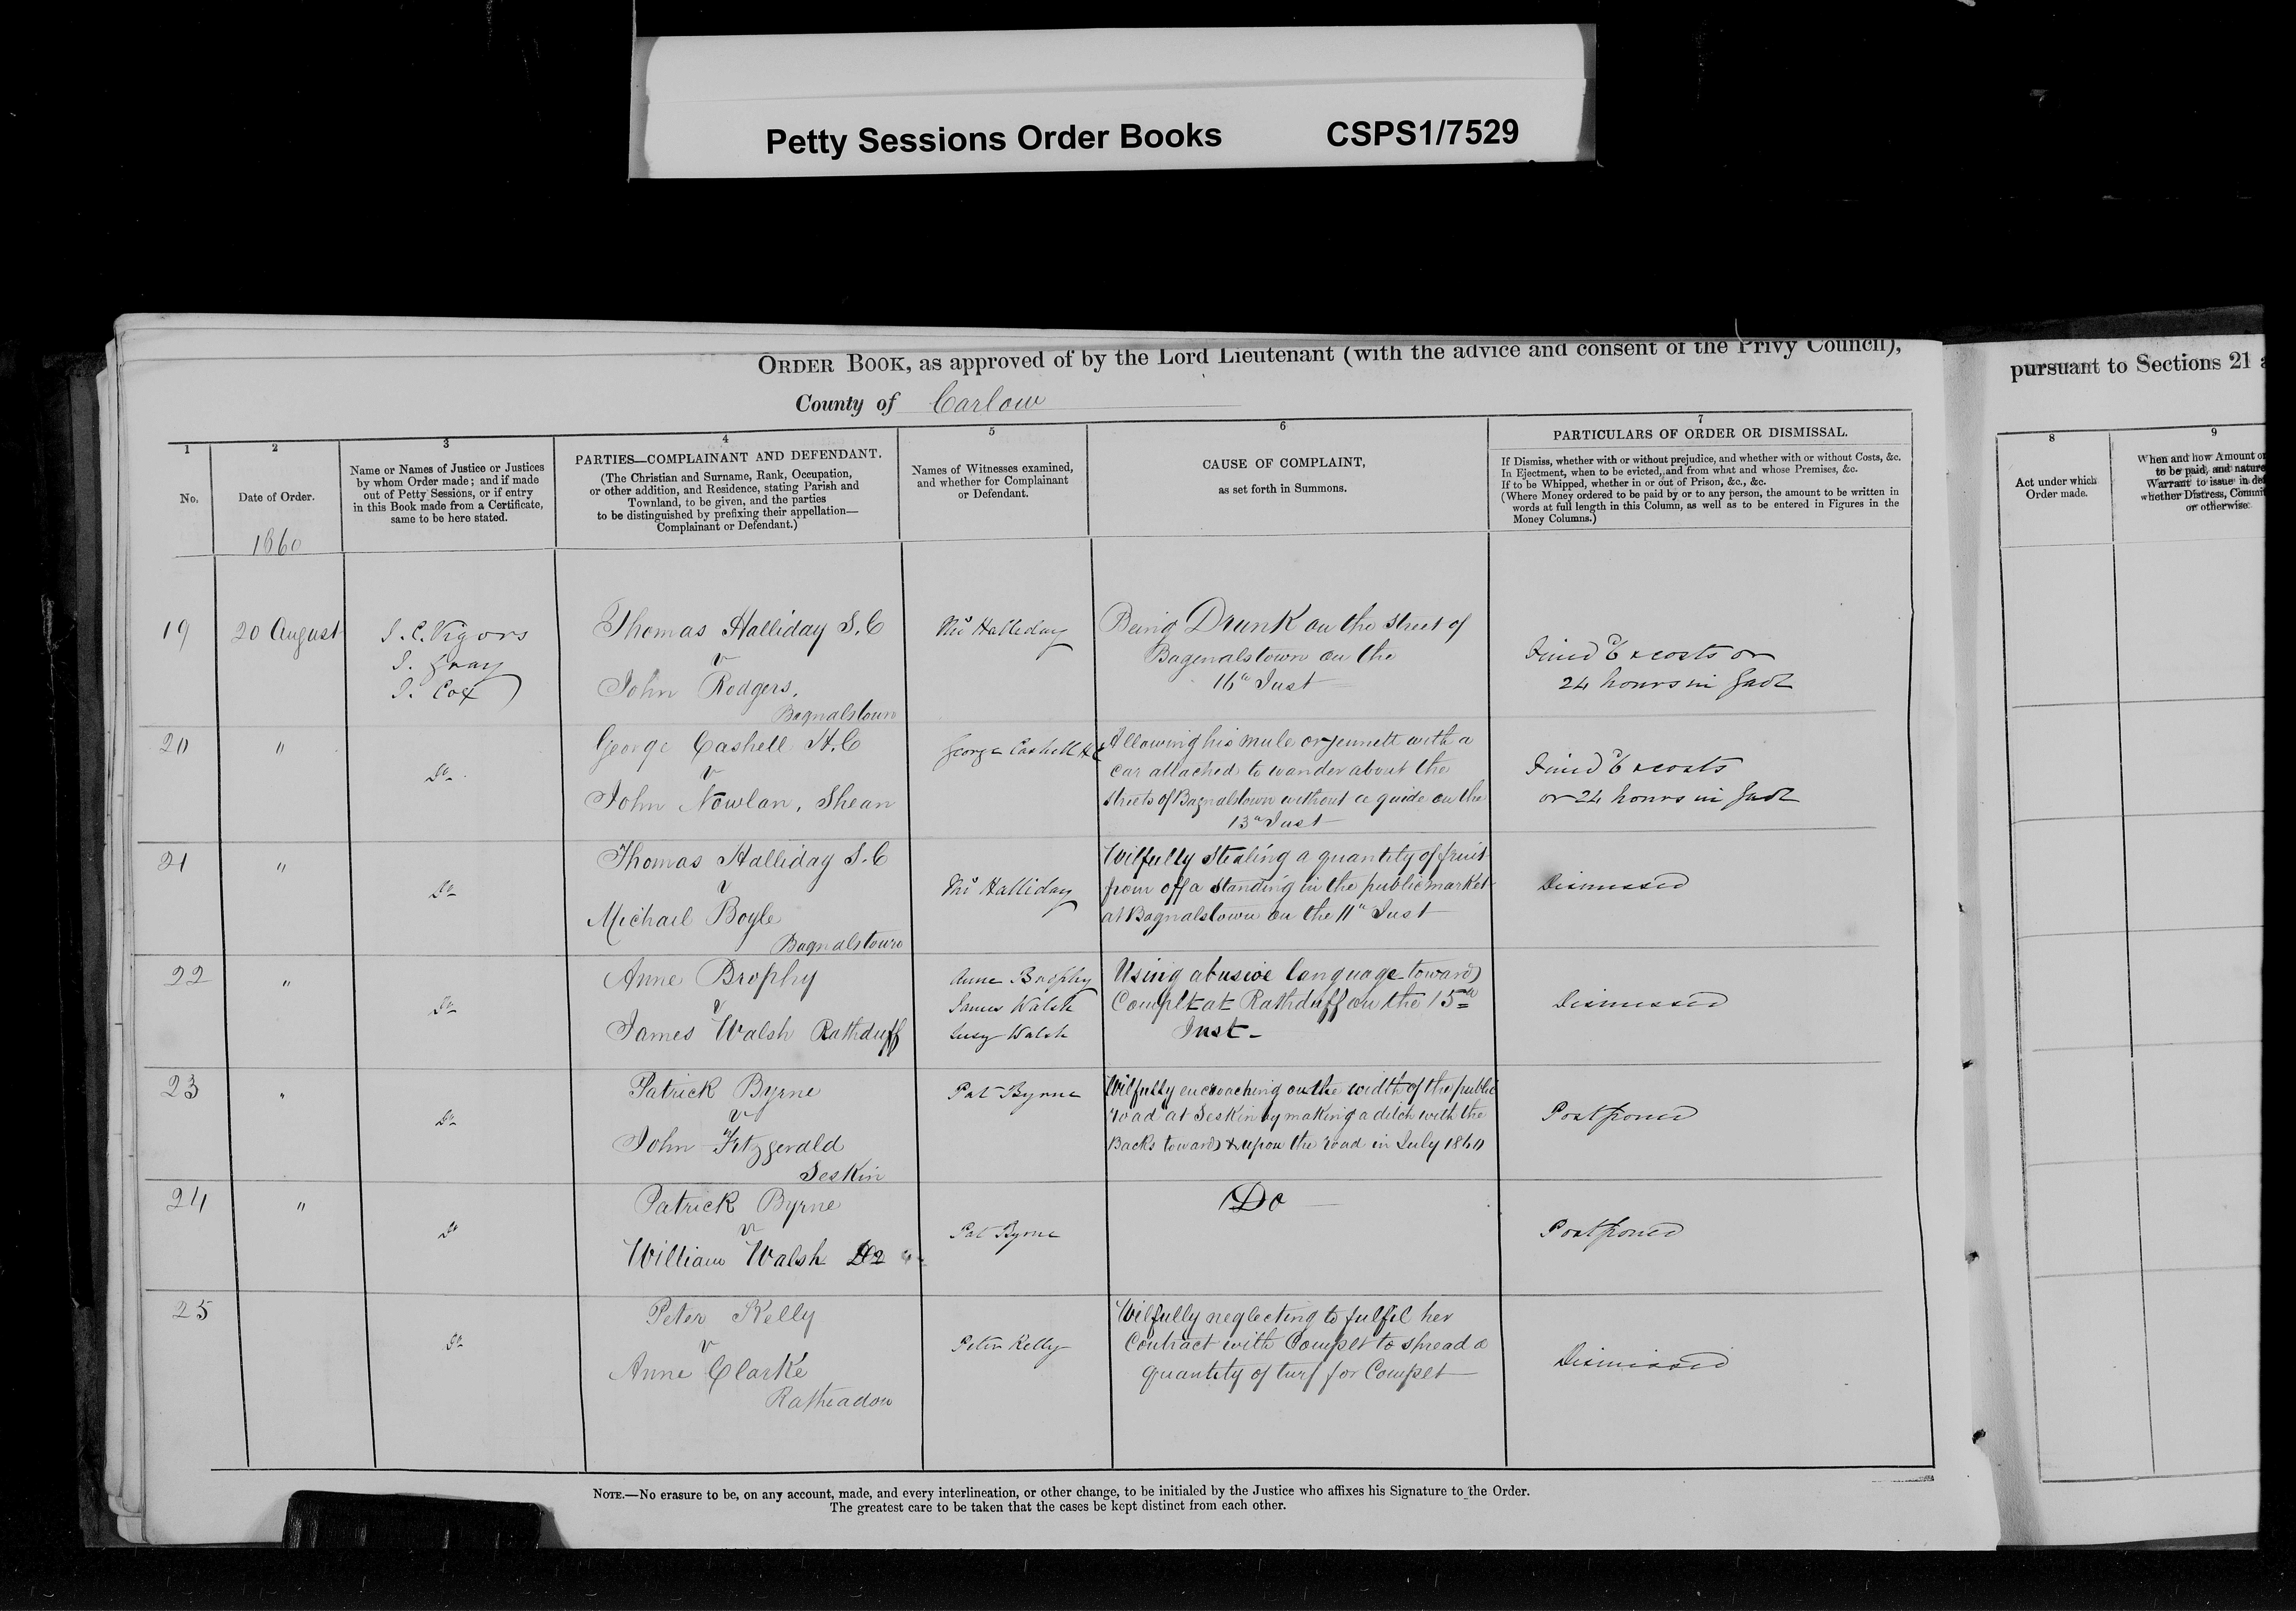 Petty Sessions Order Books CSPS1/7529
ORDER BOOK, as approved of by the Lord Lieutenant (with the advice and consent of the Privy Council),
pursuant to Sections 21
County of Carlow
1
2
3
4
5
6
7
8
9
No.
Date of Order.
1860
Name or Names of Justice or Justices
by whom Order made; and if made
out of Petty Sessions, or if entry
in this Book made from a Certificate,
same to be here stated.
PARTIES—COMPLAINANT AND DEFENDANT.
(The Christian and Surname, Rank, Occupation,
or other addition, and Residence, stating Parish and
Townland, to be given, and the parties
to be distinguished by prefixing their appellation—
Complainant or Defendant.)
Names of Witnesses examined,
and whether for Complainant
or Defendant.
CAUSE OF COMPLAINT,
as set forth in Summons.
PARTICULARS OF ORDER OR DISMISSAL.
If Dismiss, whether with or without prejudice, and whether with or without Costs, &c.
In Ejectment, when to be evicted, and from what and whose Premises, &c.
If to be Whipped, whether in or out of Prison, &c., &c.
(Where Money ordered to be paid by or to any person, the amount to be written in
words at full length in this Column, as well as to be entered in Figures in the
Money Columns.)
Act under which
Order made.
When and how Amount
to be paid, and nature
Warrant to issue in
whether Distress,
or otherwise
19
20 August
Vigors
Gray
Cox
Thomas Halliday S.C
v
John Rodgers,
Bagnalstown
Thos Halliday
Being Drunk on the Street of
Bagenalstown on the
16th Inst
Fined & costs or
24 hours in Gaol
20
"
Do
George Cashell H.C
v
John Nowlan, Shean
George Cashell H.C
Allowing his mule or jennett with a
car attached to wander about the
streets of Bagnalstown without a guide on the
13th Inst
Fined & costs
or 24 hours in Gaol
21
"
Do
Thomas Halliday S.C
v
Michael Boyle
Bagnalstown
Thos Halliday
Wilfully Stealing a quantity of fruit
from off a Standing in the public market
at Bagnalstown on the 11th Inst
Dismissed
22
"
Do
Anne Brophy
v
James Walsh Rathduff
Anne Brophy
James Walsh
Lucy Walsh
Using abusive language towards
Complt at Rathduff on the 15th
Inst
Dismissed
23
"
Do
Patrick Byrne
v
John Fitzgerald
Seskin
Pat Byrne
Wilfully encroaching on the width of the public
road at Seskin by making a ditch with the
Backs towards & upon the road in July 1860
Postponed
24
"
Do
Patrick Byrne
v
William Walsh Do
Pat Byrne
Do
Postponed
25
Do
Peter Kelly
v
Anne Clarke
Ratheadon
Peter Kelly
Wilfully neglecting to fulfil her
Contract with Complt to spread a
quantity of turf for Complt
Dismissed
NOTE.—No erasure to be, on any account, made, and every interlineation, or other change, to be initialed by the Justice who affixes his Signature to the Order.
The greatest care to be taken that the cases be kept distinct from each other.